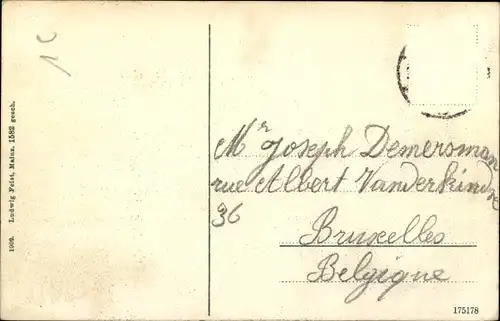 1C
1909. Ludwig Feist, Mainz. 1582 gesch.
Mr Joseph Demersman
rue Albert Vanderkindze
36
Bruxelles
Belgique
175178